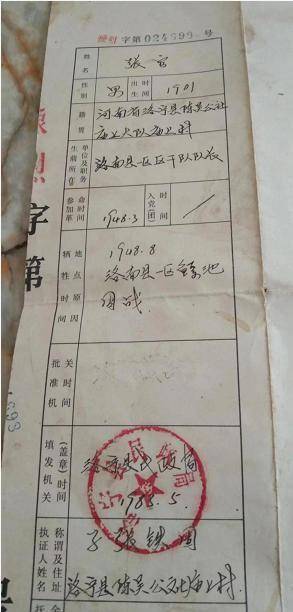 豫烈 字第 024899 号
姓名
张官
性别
男
出生时间
1901
籍贯
河南省洛宁县陈吴公社
庙上大队庙上村
生前所在单位及职务
洛南县一区区干队队长
参加革命时间
1948.3
入党(团)时间
牺牲时间地点原因
1948.8
洛南县一区
因战
批准机关时间
填发机关(盖章)时间
洛宁县民政局
1983.5.
执证人姓名称谓及住址
子 张铁周
洛宁县陈吴公社庙上村
烈
字
第